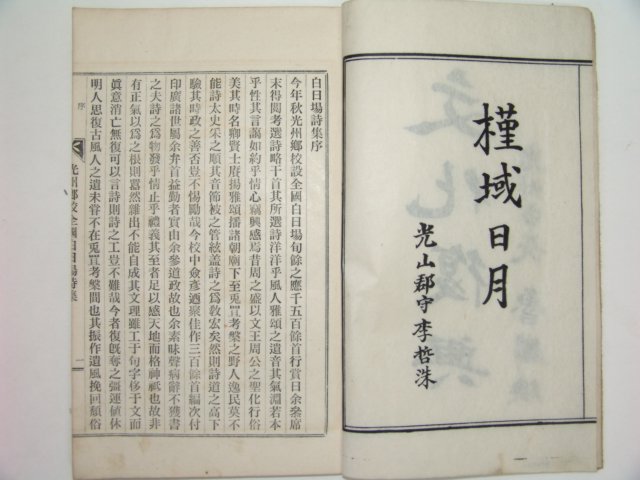 槿域日月
光山郡守李哲洙
白日場詩集序
今年秋光州鄕校設全國白日場旬餘之應千五百餘首行賞日余參席
末得閱考選詩略干首其所選詩洋洋乎風人雅頌之遺音其氣淵若本
乎性其言謁如約乎情心竊興感焉昔周之盛以文王周公之聖化行俗
美其時名卿賢士賡揚雅頌播諸朝廟下至兎罝考槃之野人逸民莫不
能詩太史釆之順其音節被之管絃盖詩之敎宏矣然則詩道之高下
驗其時政之善否豈不惕勵哉今校中僉彦迺聚佳作三百餘首編次付
印廣諸世屬余弁首益勤者實由余參道政故也余素昧聲病辭不獲書
之夫詩之爲物發乎情止乎禮義其至者足以感天地而格神祗也故非
有正氣以爲之根則囂然雜出不能自成其文理雖工于句字侈于文而
眞意消亡無復可以言詩則詩之工豈不難哉今者復旣奪之疆運値休
明人思復古風人之遺未甞不在兎罝考槃間也其振作遺風挽回頹俗
序
光州鄕校全國白日場詩集
一